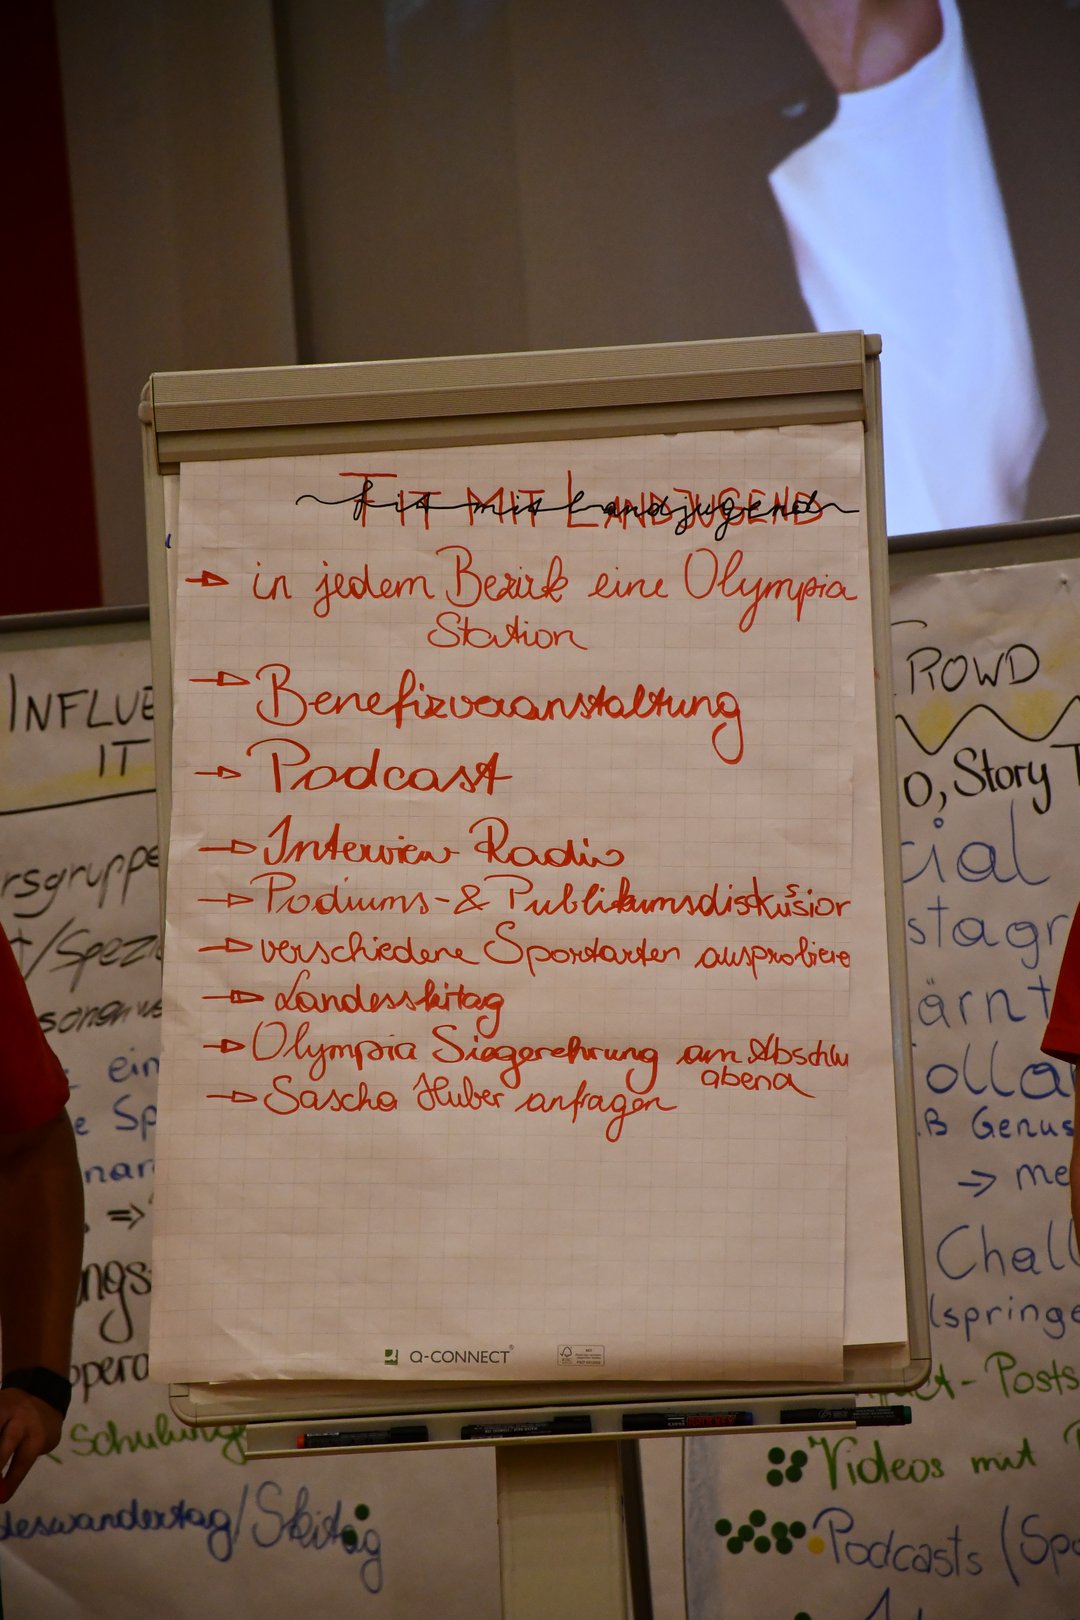 FIT MIT LANDJUGEND
fit mit Landjugend
→ in jedem Bezirk eine Olympia
Station
→ Benefizveranstaltung
→ Podcast
→ Interview Radio
→ Podiums- & Publikumsdiskussion
→ verschiedene Sportarten ausprobiere
→ Landesskitag
→ Olympia Siegerehrung am Abschlu
abend
→ Sascha Huber anfragen
Q-CONNECT
INFLUE
IT
rsgruppe
t/Spezi
ein
e Sp
nar
⇒
ngs
opera
Schulung
deswandertag/Skitag
CROWD
O, Story T
cial
stagr
ärnt
olla
.B Genus
→ me
Chall
lspringe
- Posts
Videos mit
Podcasts (Spo